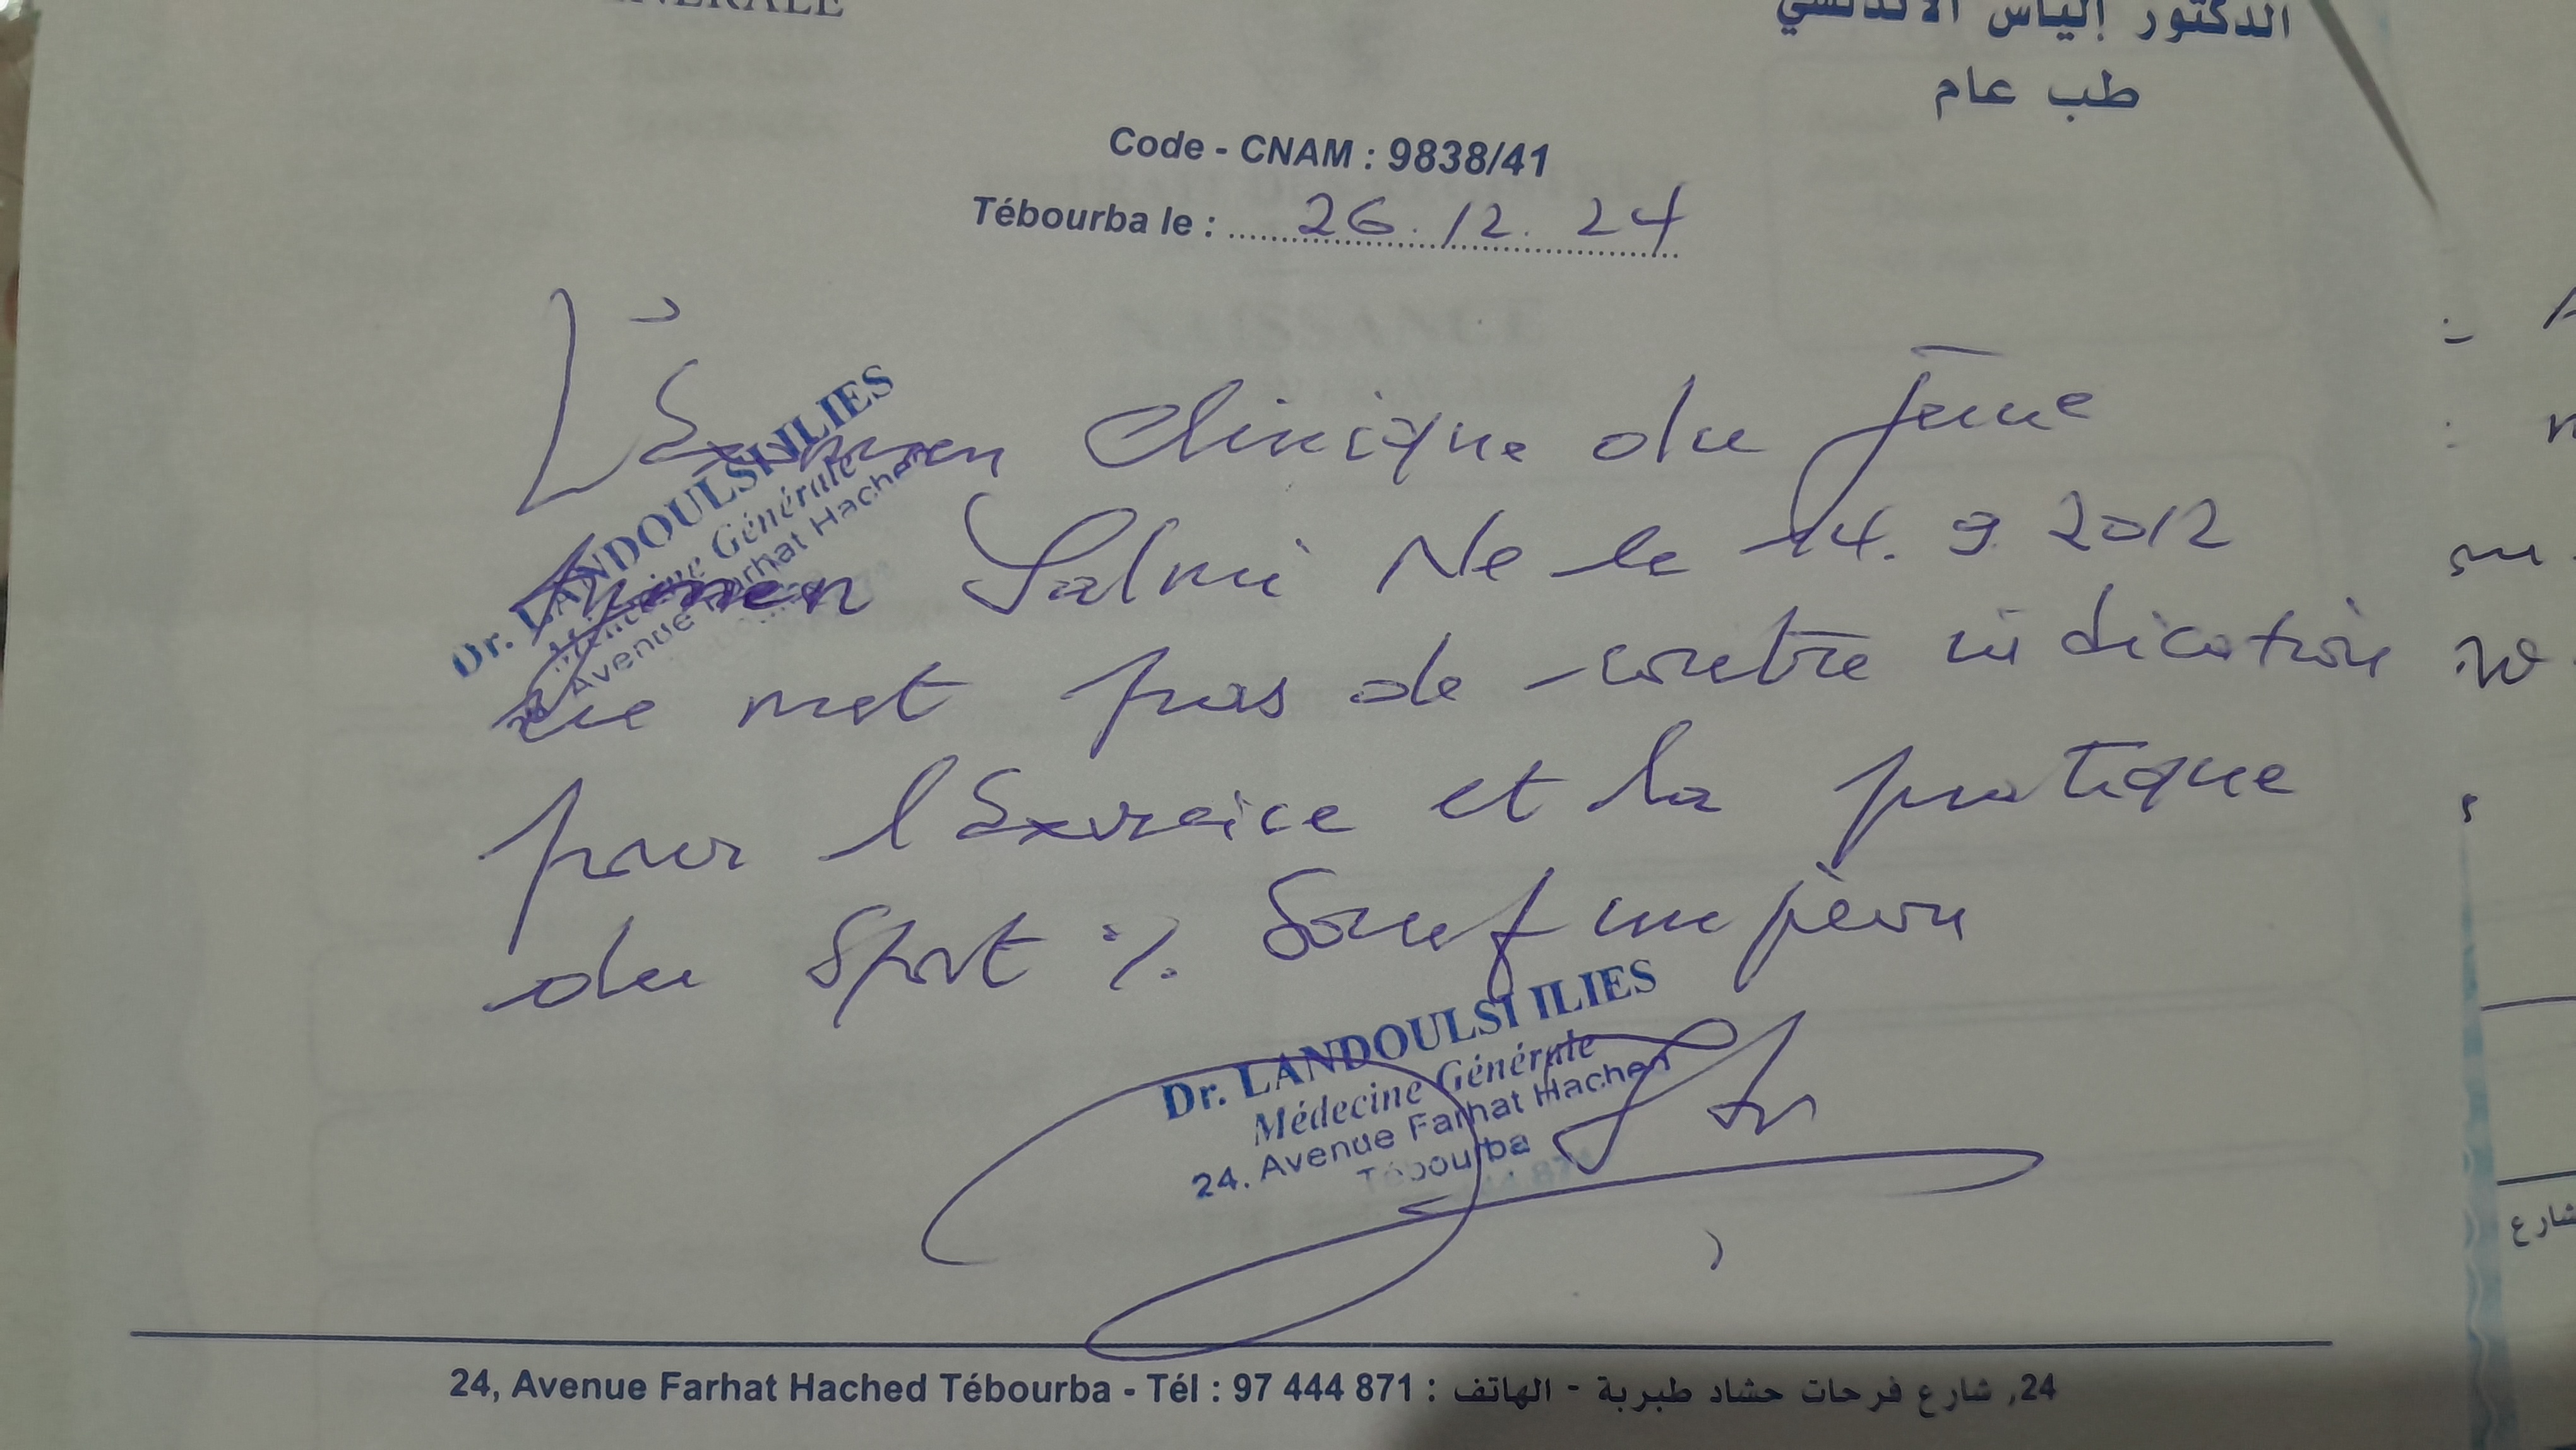 الدكتور إلياس الأندلسي
طب عام
Code - CNAM : 9838/41
Tébourba le : 26.12.24
L'Examen Clinique du jeune
Salmi Ne le 14.9.2012
ne met pas de contre indication
pour l'Exercice et la pratique
du Sport %. Sauf imprévu
Dr. LANDOULSI ILIES
Médecine Générale
Avenue Farhat Hached
Dr. LANDOULSI ILIES
Médecine Générale
24. Avenue Farhat Hached
Tébourba
24, Avenue Farhat Hached Tébourba - Tél : 97 444 871 : الهاتف - 24, شارع فرحات حشاد طبربة
شارع